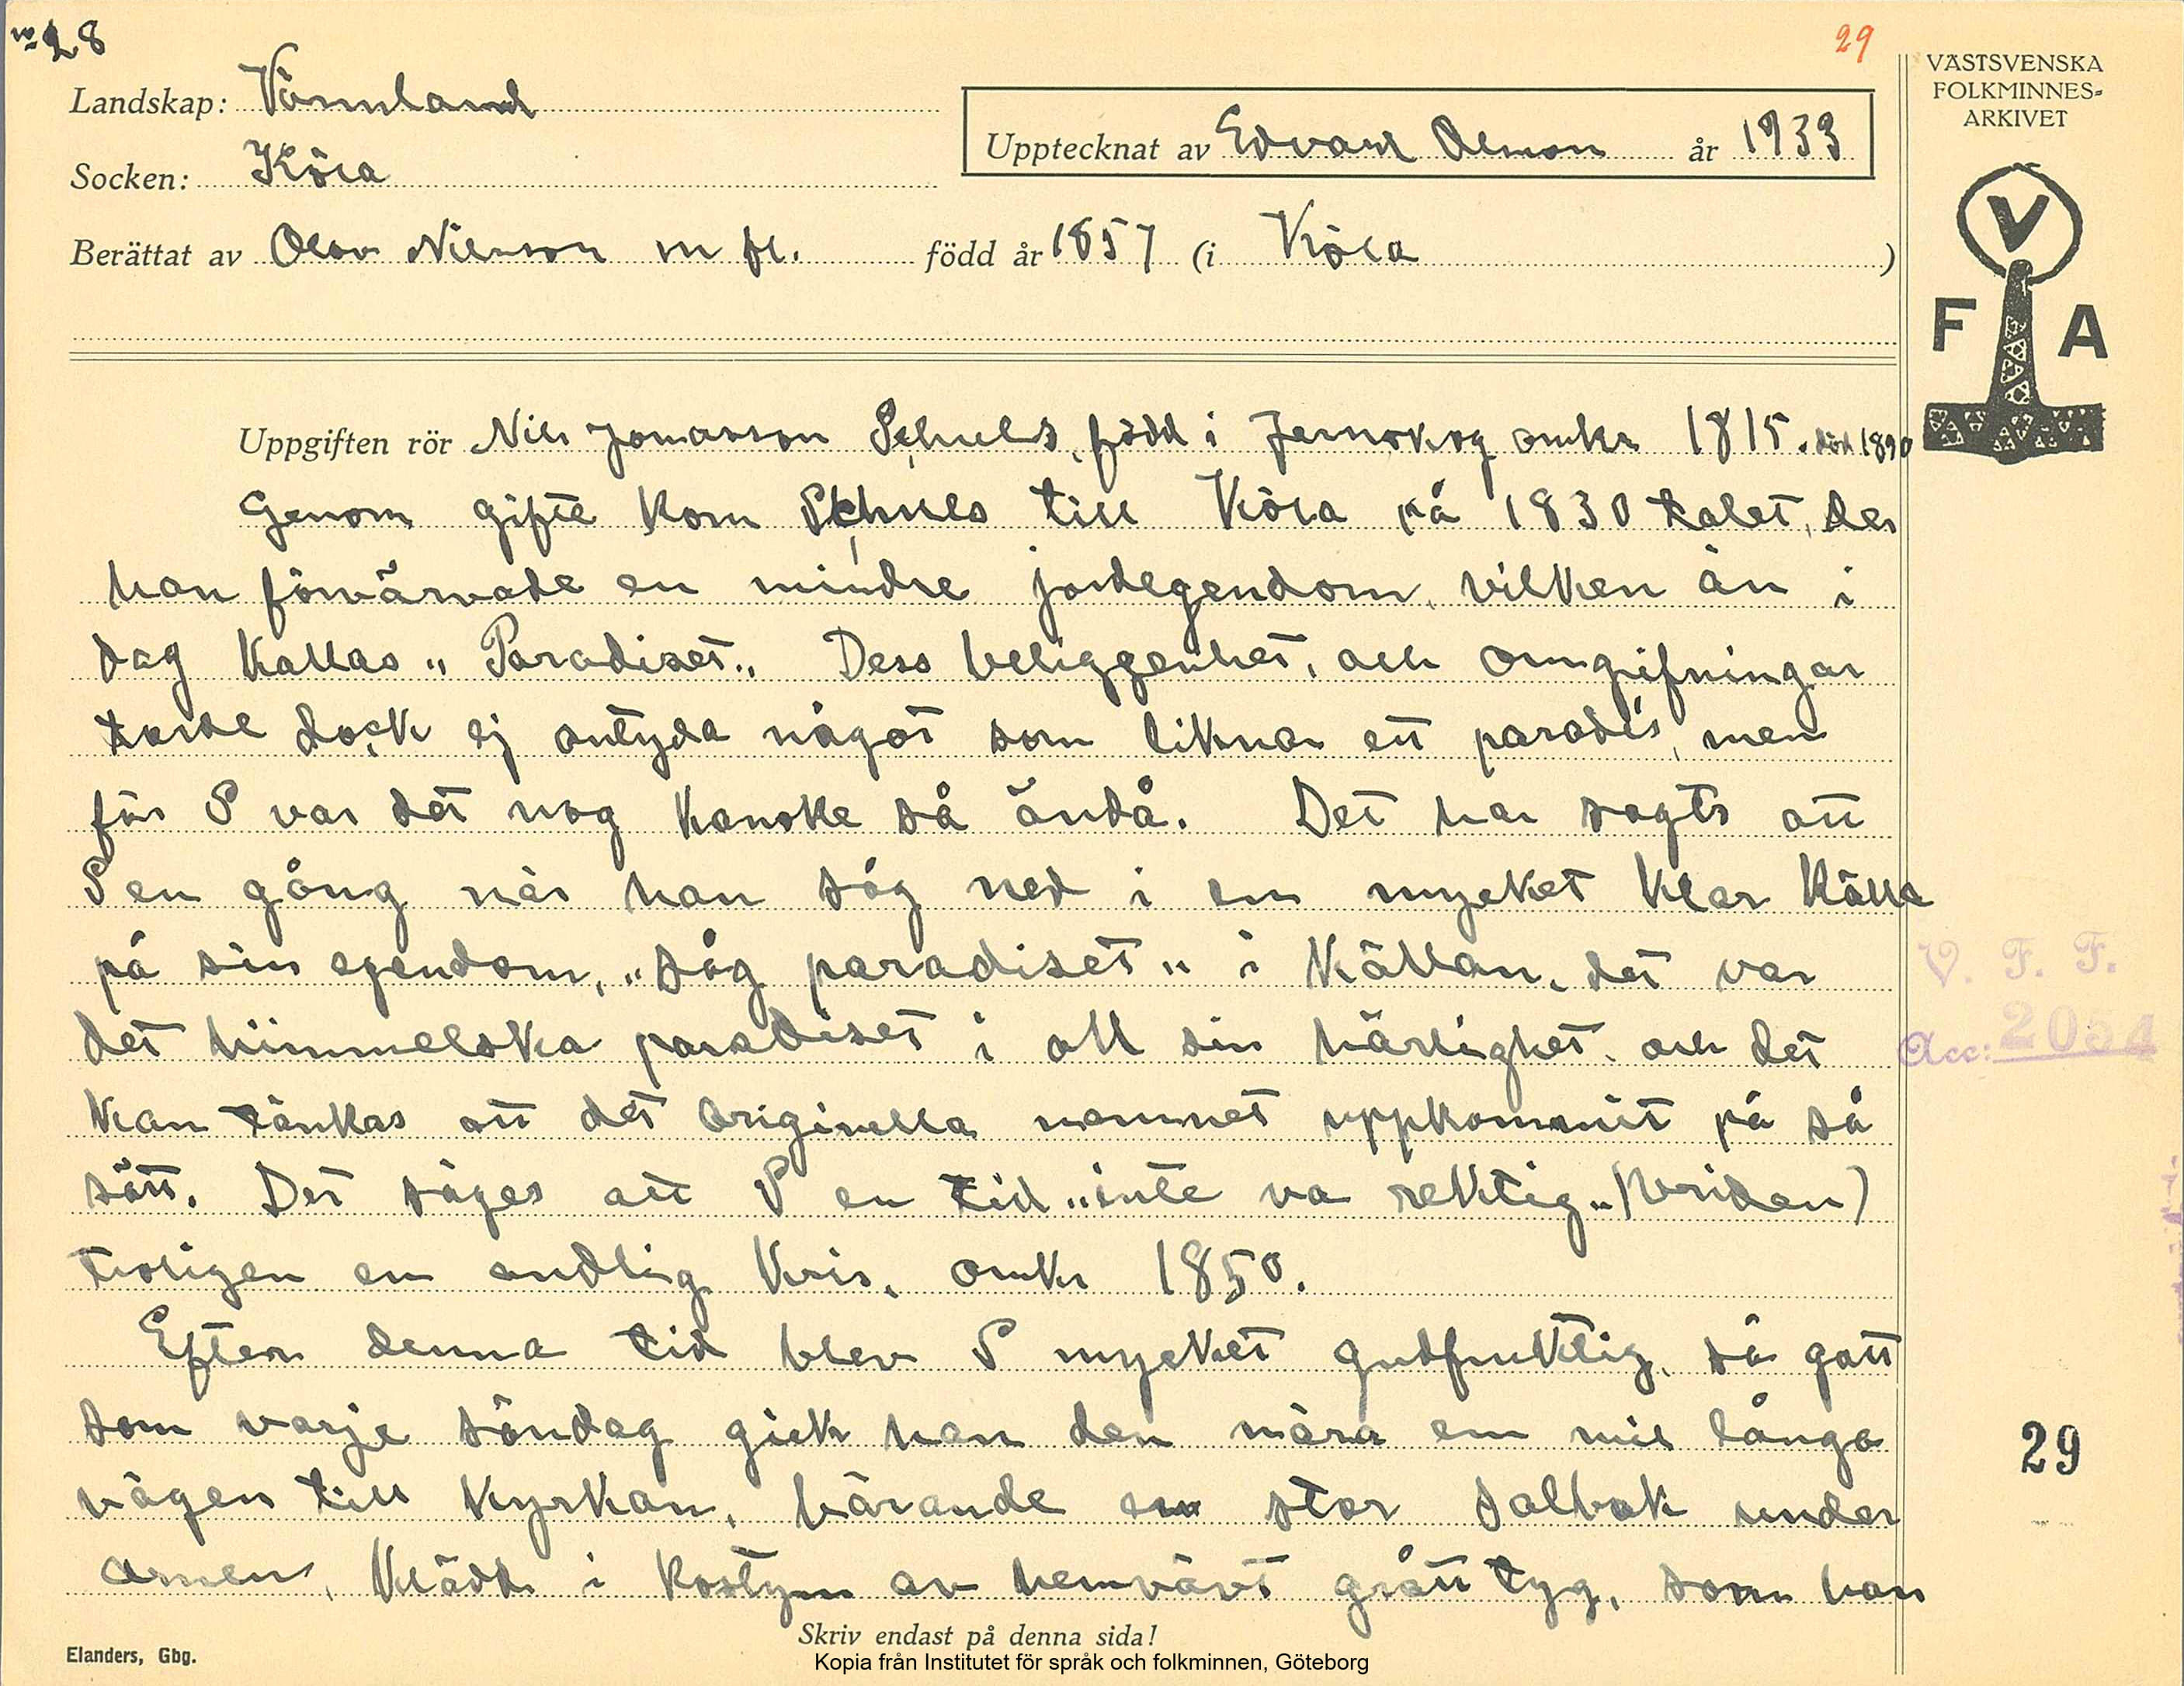 no 28
29
Landskap: Värmland
Socken: Köla
Upptecknat av Edvard Olsson år 1933
Berättat av Olov Nilsson m fl. född år 1857 (i Köla)
VÄSTSVENSKA
FOLKMINNES-
ARKIVET
V
F A
Uppgiften rör Nils Jonasson Schuls, född i Jernskog omkr 1815. död 1890
Genom gifte kom Schuls till Köla på 1830 talet, der
han förvärvade en mindre jordegendom, vilken än i
dag kallas "Paradiset". Dess beliggenhet, och omgifningar
torde dock ej antyda något som liknar ett paradis, men
för S var det nog kanske så ändå. Det har sagts att
S en gång när han såg ned i en mycket klar källa
på sin egendom, "såg paradiset" i källan, det var
det himmelska paradiset i all sin härlighet, och det
kan tänkas att det originella namnet uppkommit på så
sätt. Det säges att S en tid "inte va rektig" (vriden)
troligen en andlig kris, omkr 1850.
Efter denna tid blev S mycket gudfruktig, så gott
som varje söndag gick han den nära en mil långa
vägen till kyrkan, bärande en stor salbok under
armen, klädd i kostym av hemvävt grått tyg, som han
V. F. F.
Acc: 2054
29
Skriv endast på denna sida!
Elanders, Gbg.
Kopia från Institutet för språk och folkminnen, Göteborg